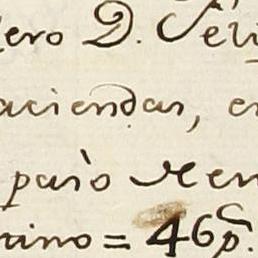 ero D. Feli
aciendas, en
paso Ren
tino = 46p.